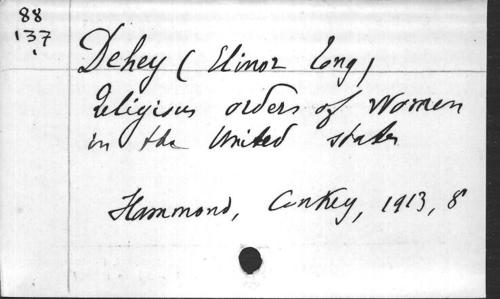 88
137
Dehey (Elinor Tong)
Religious orders of Women
in the United states
Hammond, Conkey, 1913, 8°